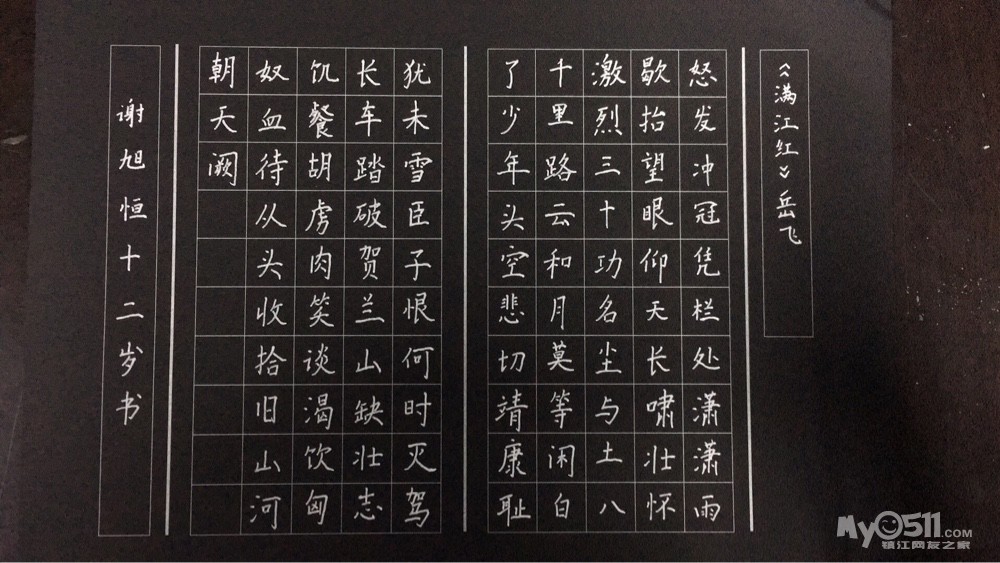 《满江红》岳飞
怒发冲冠凭栏处潇潇雨
歇抬望眼仰天长啸壮怀
激烈三十功名尘与土八
千里路云和月莫等闲白
了少年头空悲切靖康耻
犹未雪臣子恨何时灭驾
长车踏破贺兰山缺壮志
饥餐胡虏肉笑谈渴饮匈
奴血待从头收拾旧山河
朝天阙
谢旭恒十二岁书
My0511.COM
镇江网友之家